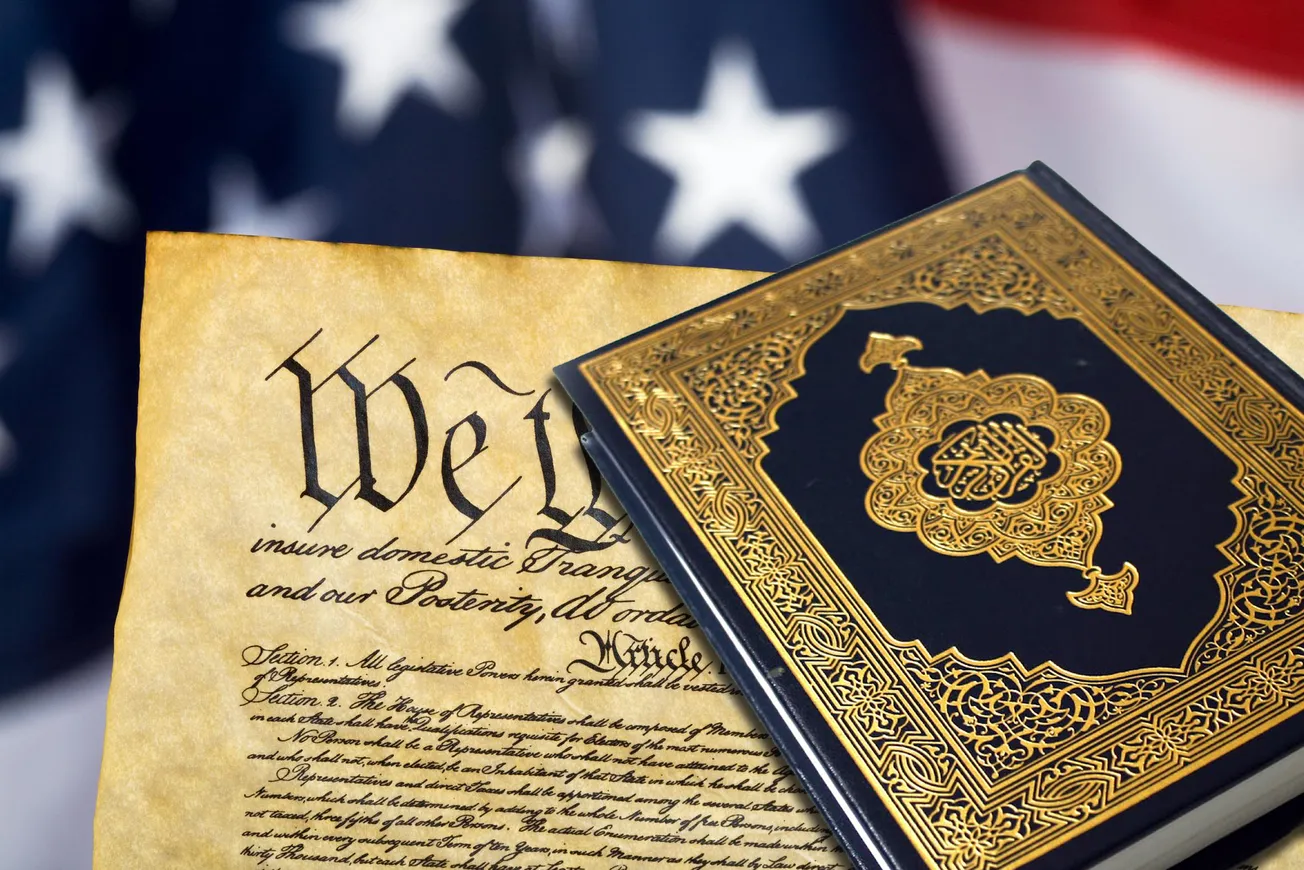 We
insure domestic Tranqu
and our Posterity, do orda
Article
Section. 1. All legislative Powers herein granted shall be vested
of Representatives
Section. 2. The House of Representatives shall be composed of Member
in each State shall have the Qualifications requisite for Electors of the most numerous
No Person shall be a Representative who shall not have attained to the
and who shall not, when elected, be an Inhabitant of that State in which he shall be
Representatives and direct Taxes shall be apportioned among the several States
Numbers, which shall be determined by adding to the whole Number of free Persons, including
not taxed, three fifths of all other Persons. The actual Enumeration shall be made within
and within every subsequent Term of ten Years, in such Manner as they shall by Law direct
thirty Thousand, but each State shall have at Least
القرآن الكريم